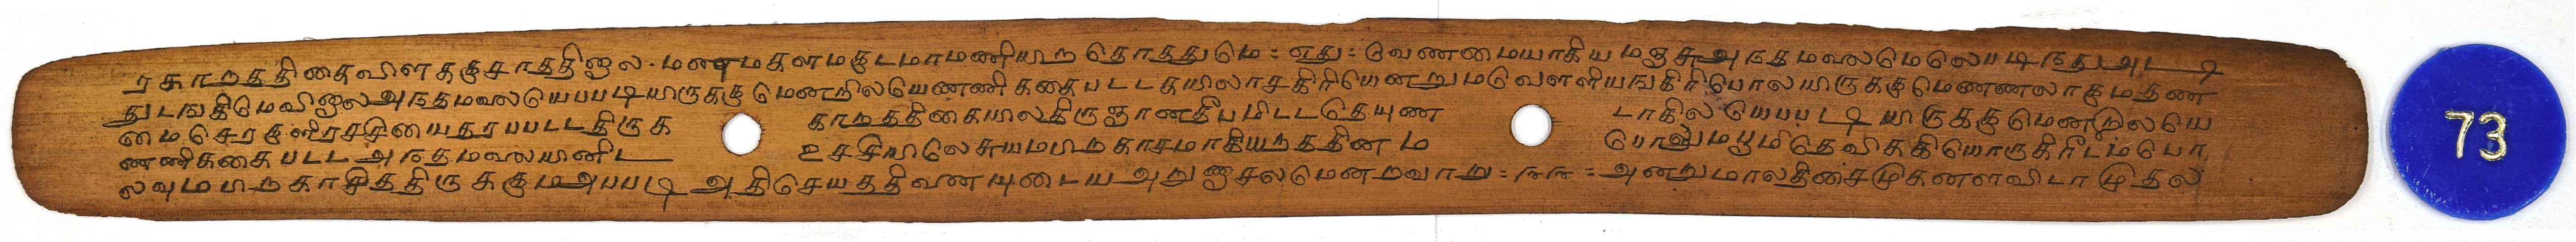 ரகாறத்திகைவிளக்குசாத்தினால. மணமகளமகுடமாமணியுற தொத்துமெ : எது : வெண்மையாகிய மஞசுஅந்தமலைமெலெபடிந்துஅடடி
துடஙகிமெவினாலஅந்தமலையெபபடியிருக்கு மென்றிலயெணணிககைபடடகயிலாசகிரியென்றுமடுவெளளியங்கிரிபோலயிருக்குமெண்ணலாகுமதண
மைசெரகுளிரசசியைதரபபடடதிருக காறத்திகையிலகிருஞானதீபமிடடதெயுண டாகில யெபபடடியிருக்குமென்றிலயெ
ணணிககைபடட அந்தமலையினிட உசசியிலெசுயமபிறகாசமாகியறத்தினம பொலுமபூமிதெவிககியொருகிரீடம்பொ
லவுமபிறகாசித்திருக்கும்அபபடி அதிசெயத்தீவணயுடைய அறுணாசலமென்றவாறு : ௩௩ : அன்றுமாலதிசைமுகனளவிடாமுதல
73